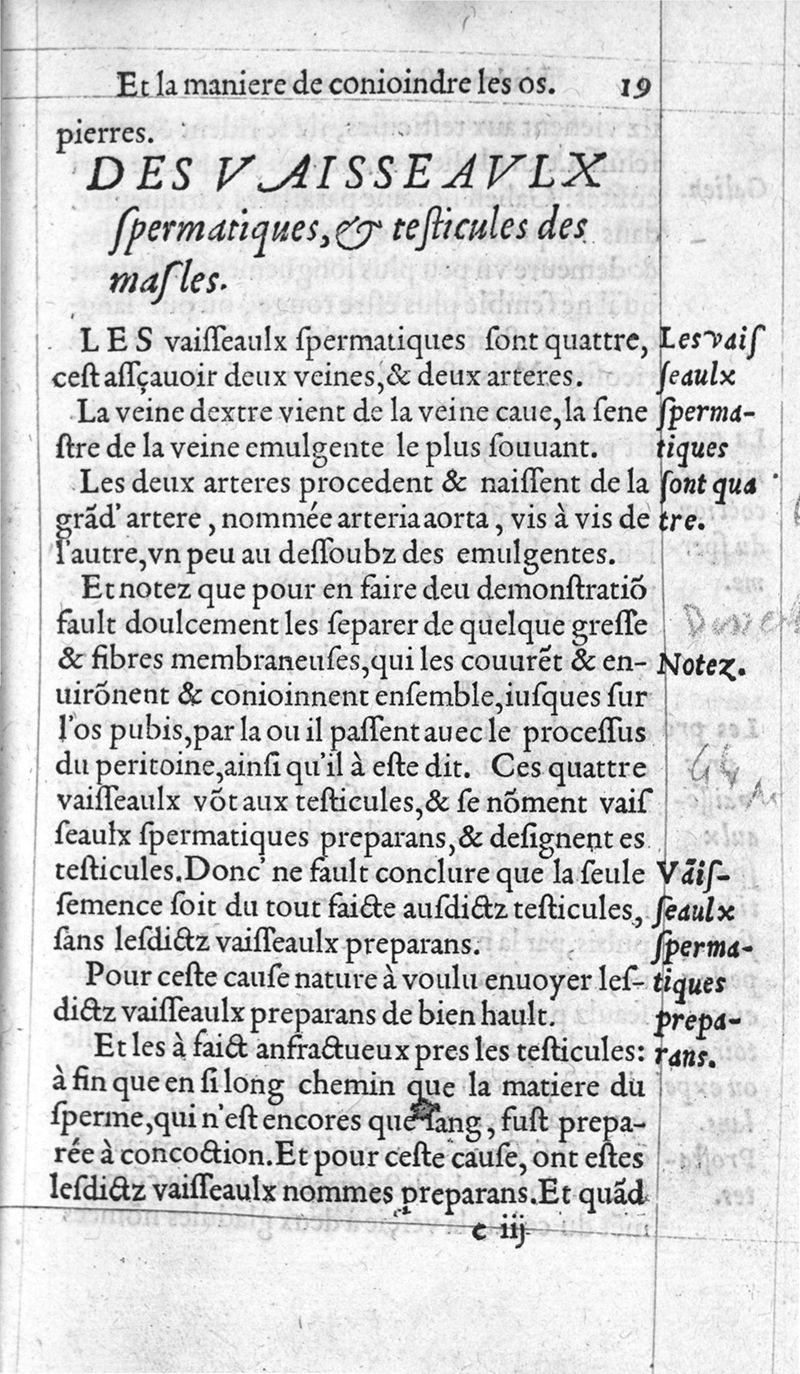 Et la maniere de conioindre les os. 19
pierres.
DES VAISSEAVLX
ſpermatiques, & teſticules des
maſles.
LES vaiſſeaulx ſpermatiques ſont quattre,
ceſt aſſçauoir deux veines, & deux arteres.
La veine dextre vient de la veine caue, la ſene
ſtre de la veine emulgente le plus ſouuant.
Les deux arteres procedent & naiſſent de la
grãd' artere, nommée arteria aorta, vis à vis de
l'autre, vn peu au deſſoubz des emulgentes.
Et notez que pour en faire deu demonſtratiõ
fault doulcement les ſeparer de quelque greſſe
& fibres membraneuſes, qui les couurẽt & en-
uirõnent & conioinnent enſemble, iuſques ſur
l'os pubis, par la ou il paſſent auec le proceſſus
du peritoine, ainſi qu'il à eſte dit. Ces quattre
vaiſſeaulx võt aux teſticules, & ſe nõment vaiſ
ſeaulx ſpermatiques preparans, & deſignent es
teſticules. Donc' ne fault conclure que la ſeule
ſemence ſoit du tout faicte auſdictz teſticules,
ſans leſdictz vaiſſeaulx preparans.
Pour ceſte cauſe nature à voulu enuoyer leſ-
dictz vaiſſeaulx preparans de bien hault.
Et les à faict anfractueux pres les teſticules:
à fin que en ſi long chemin que la matiere du
ſperme, qui n'eſt encores que ſang, fuſt prepa-
rée à concoction. Et pour ceſte cauſe, ont eſtes
leſdictz vaiſſeaulx nommes preparans. Et quãd
c iij
Les vaiſ
ſeaulx
ſperma-
tiques
ſont qua
tre.
Notez.
Vãiſ-
ſeaulx
ſperma-
tiques
prepa-
rans.